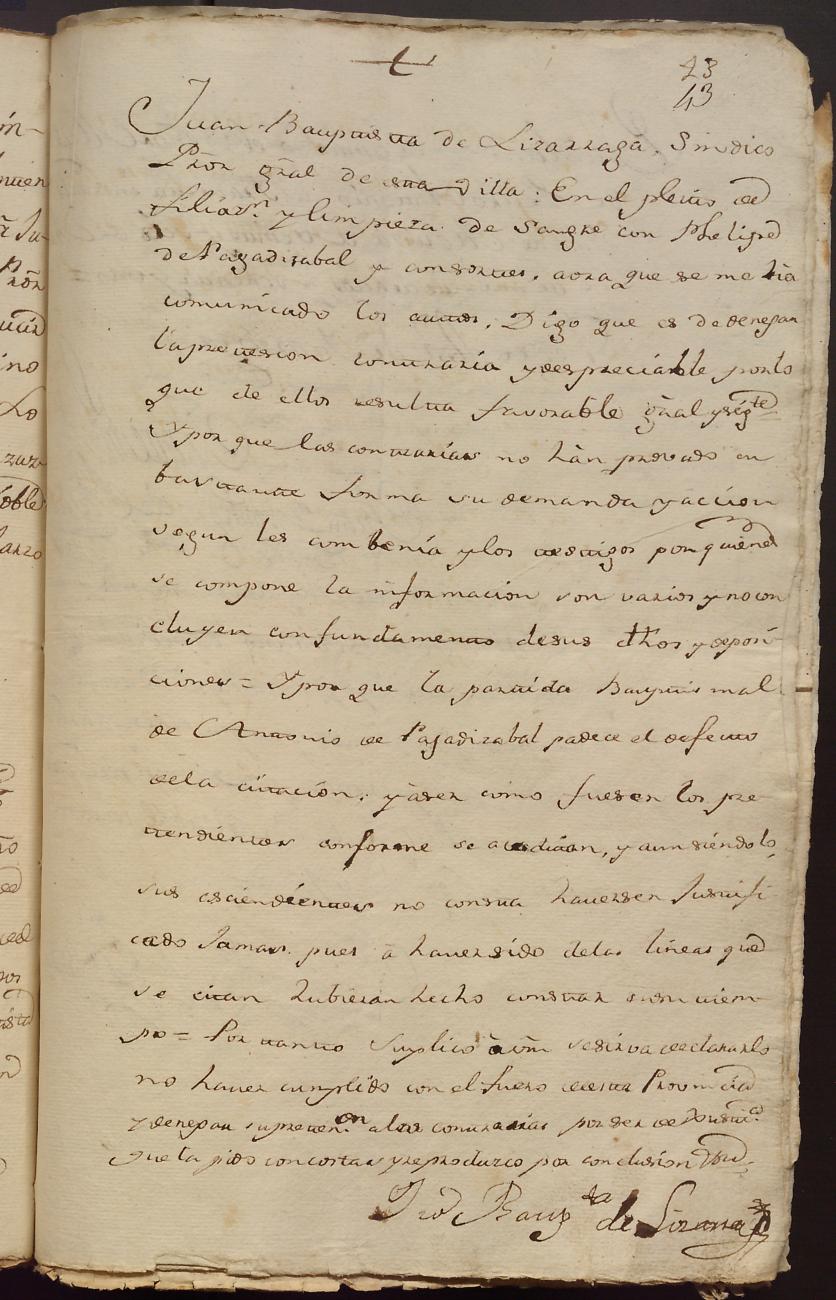 23
43
Juan Bauptista de Lizarraga. Sindico
Pror gral de esta Villa: En el pleito de
filiazn. y limpieza de Sangre con Phelipe
de Pagadizabal y consortes, aora que se me hà
comunicado los autos, Digo que es de denegar
la pretension contraria y despreciable por lo
que de ellos resulta favorable gral y sigte
Y por que las contrarias no hàn provado en
bastante forma su demanda y accion
segun les combenía y los testigos por quienes
se compone la informacion son varios y no con
cluyen con fundamento de sus dhos y deposi
ciones = Y por que la partida Bauptismal
de Antonio de Pagadizabal padece el defecto
de la citación: y à ser cómo fuesen los pre
tendientes conforme se acreditan, y aun siendolo,
sus asciendientes no consta haversen Justifi
cado Jamas. pues à haver sido de las líneas que
se citan hubieran hecho constar en su tiem
po = Por tanto Suplico à vm se sirva declararlo
no haver cumplido con el fuero de esta Provincia
y denegar su preten.on a las contrarias por ser de Justic.a
que la pido con costas y reproduzco por conclusion
Baup ta de Lizarraga